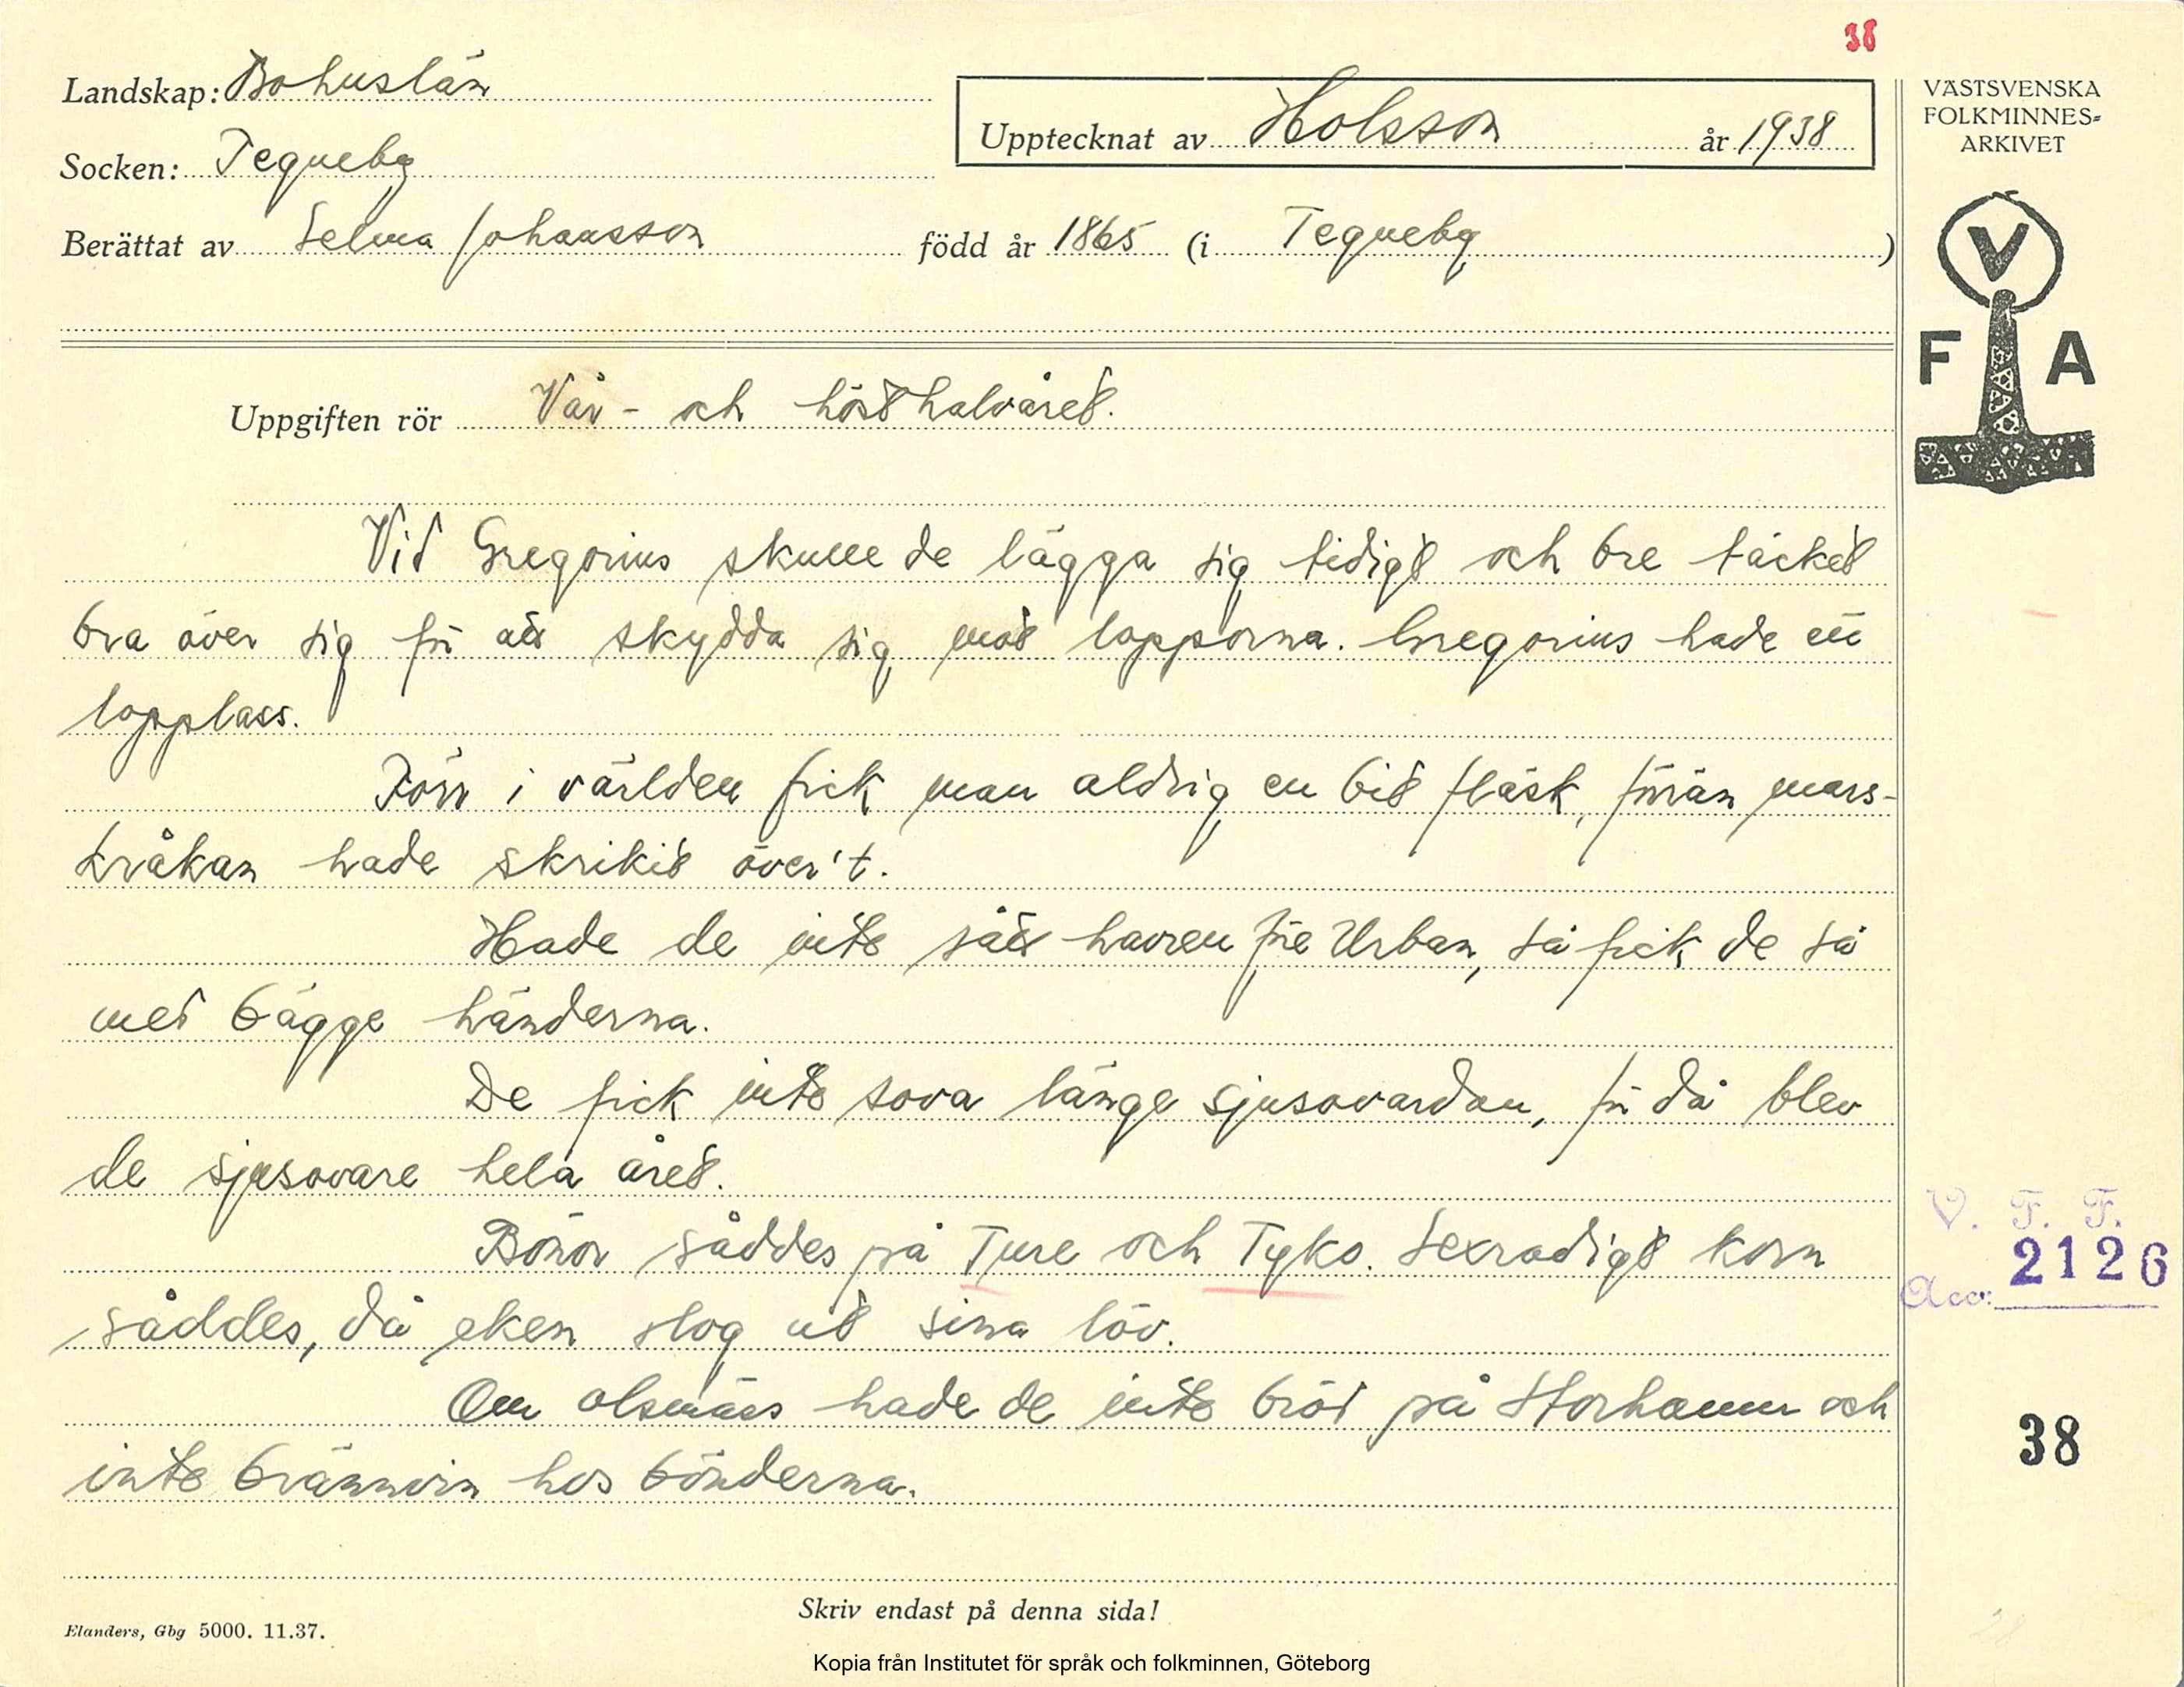 38
Landskap: Bohuslän
Upptecknat av Holsson år 1938
Socken: Tegneby
Berättat av Selma Johansson född år 1865 (i Tegneby)
VÄSTSVENSKA
FOLKMINNES-
ARKIVET
V
F A
Uppgiften rör Vår- och hösthalvåret.
Vid Gregorius skulle de lägga sig tidigt och bre täcket
bra över sig för att skydda sig mot lopporna. Gregorius hade ett
lopplass.
Förr i världen fick man aldrig en bit fläsk, förrän mars-
kråkan hade skrikit över't.
Hade de inte sått havren före Urban, så fick de så
med bägge händerna.
De fick inte sova länge sjusovardan, för då blev
de sjusovare hela året.
Bönor såddes på Ture och Tyko. Sexradigt korn
såddes, då eken slog ut sina löv.
Om olsmäss hade de inte bröd på Storhamn och
inte brännvin hos bönderna.
V. F. F.
Acc: 2126
38
Skriv endast på denna sida!
Elanders, Gbg 5000. 11.37.
Kopia från Institutet för språk och folkminnen, Göteborg